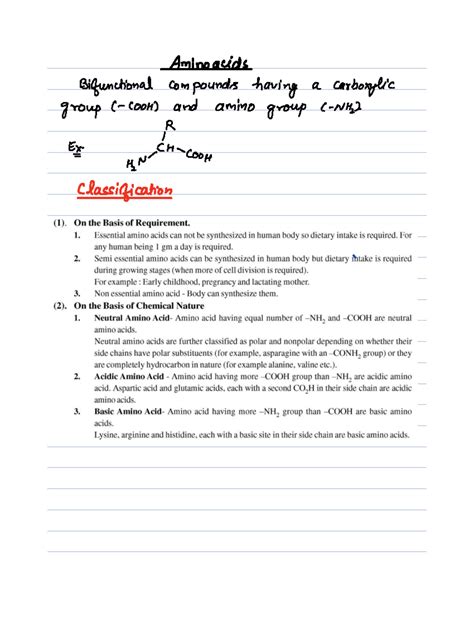 Aminoacids
Bifunctional compounds having a carboxylic
group (-COOH) and amino group (-NH2)
R
Ex
H2N CH-COOH
Classification
(1). On the Basis of Requirement.
1. Essential amino acids can not be synthesized in human body so dietary intake is required. For
any human being 1 gm a day is required.
2. Semi essential amino acids can be synthesized in human body but dietary intake is required
during growing stages (when more of cell division is required).
For example : Early childhood, pregnancy and lactating mother.
3. Non essential amino acid - Body can synthesize them.
(2). On the Basis of Chemical Nature
1. Neutral Amino Acid- Amino acid having equal number of –NH2 and –COOH are neutral
amino acids.
Neutral amino acids are further classified as polar and nonpolar depending on whether their
side chains have polar substituents (for example, asparagine with an –CONH2 group) or they
are completely hydrocarbon in nature (for example, alanine, valine etc.).
2. Acidic Amino Acid - Amino acid having more –COOH group than –NH2 are acidic amino
acid. Aspartic and glutamic acids, each with a second CO2H in their side chain are acidic
amino acids.
3. Basic Amino Acid- Amino acid having more –NH2 group than –COOH are basic amino
acids.
Lysine, arginine and histidine, each with a basic site in their side chain are basic amino acids.